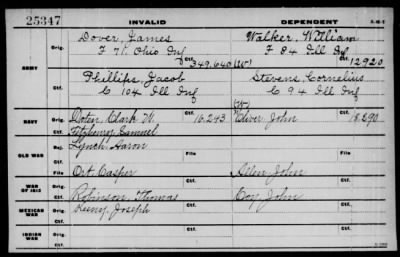 25347 INVALID DEPENDENT
Dover, James Walker, William
Orig. F 71. Ohio Inf Orig. F 84 Ill Inf
ARMY Ctf. 349,640 (W) Ctf. 12920
Phillips, Jacob Stevens, Cornelius
Orig. C 104 Ill Inf Orig. C 94 Ill Inf
Ctf. (W) Ctf.
NAVY Orig. Clark W. Ctf. 16,243 Oliver John Ctf. 18,590
Fitzhenry Samuel
OLD WAR Rej. Lynch Aaron
File File
Ort Casper Ailen John
WAR OF 1812 Ctf. Ctf.
Robinson, Thomas Coy John
MEXICAN WAR Orig. Reiny Joseph Ctf. Orig. Ctf.
INDIAN WAR Orig. Ctf. Orig. Ctf.